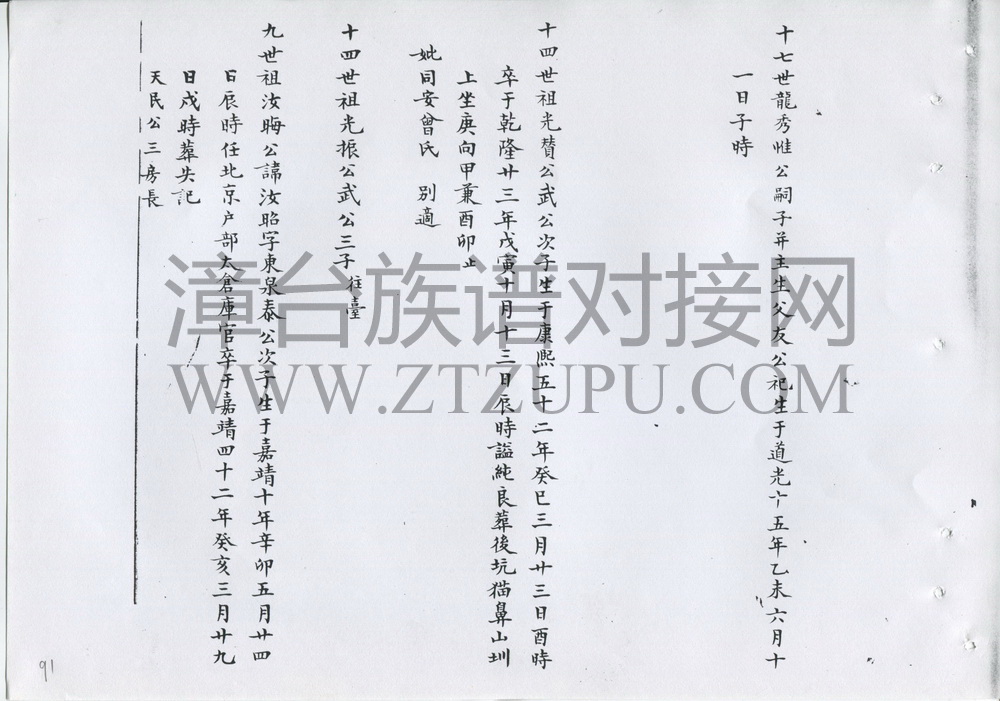 十七世龍秀惟公嗣子并主生父友公祀生于道光十五年乙未六月十
一日子時
十四世祖光贊公武公次子生于康熙五十二年癸巳三月廿三日酉時
卒于乾隆廿三年戊寅十月十三日辰時謚純良葬後坑猫鼻山圳
上坐庚向甲兼酉卯止
妣同安曾氏 別適
十四世祖光振公武公三子 往臺
九世祖汝晦公諱汝昭字東泉泰公次子生于嘉靖十年辛卯五月廿四
日辰時任北京户部太倉庫官卒于嘉靖四十二年癸亥三月廿九
日戌時葬失記
天民公三房長
91
漳台族谱对接网
WWW.ZTZUPU.COM